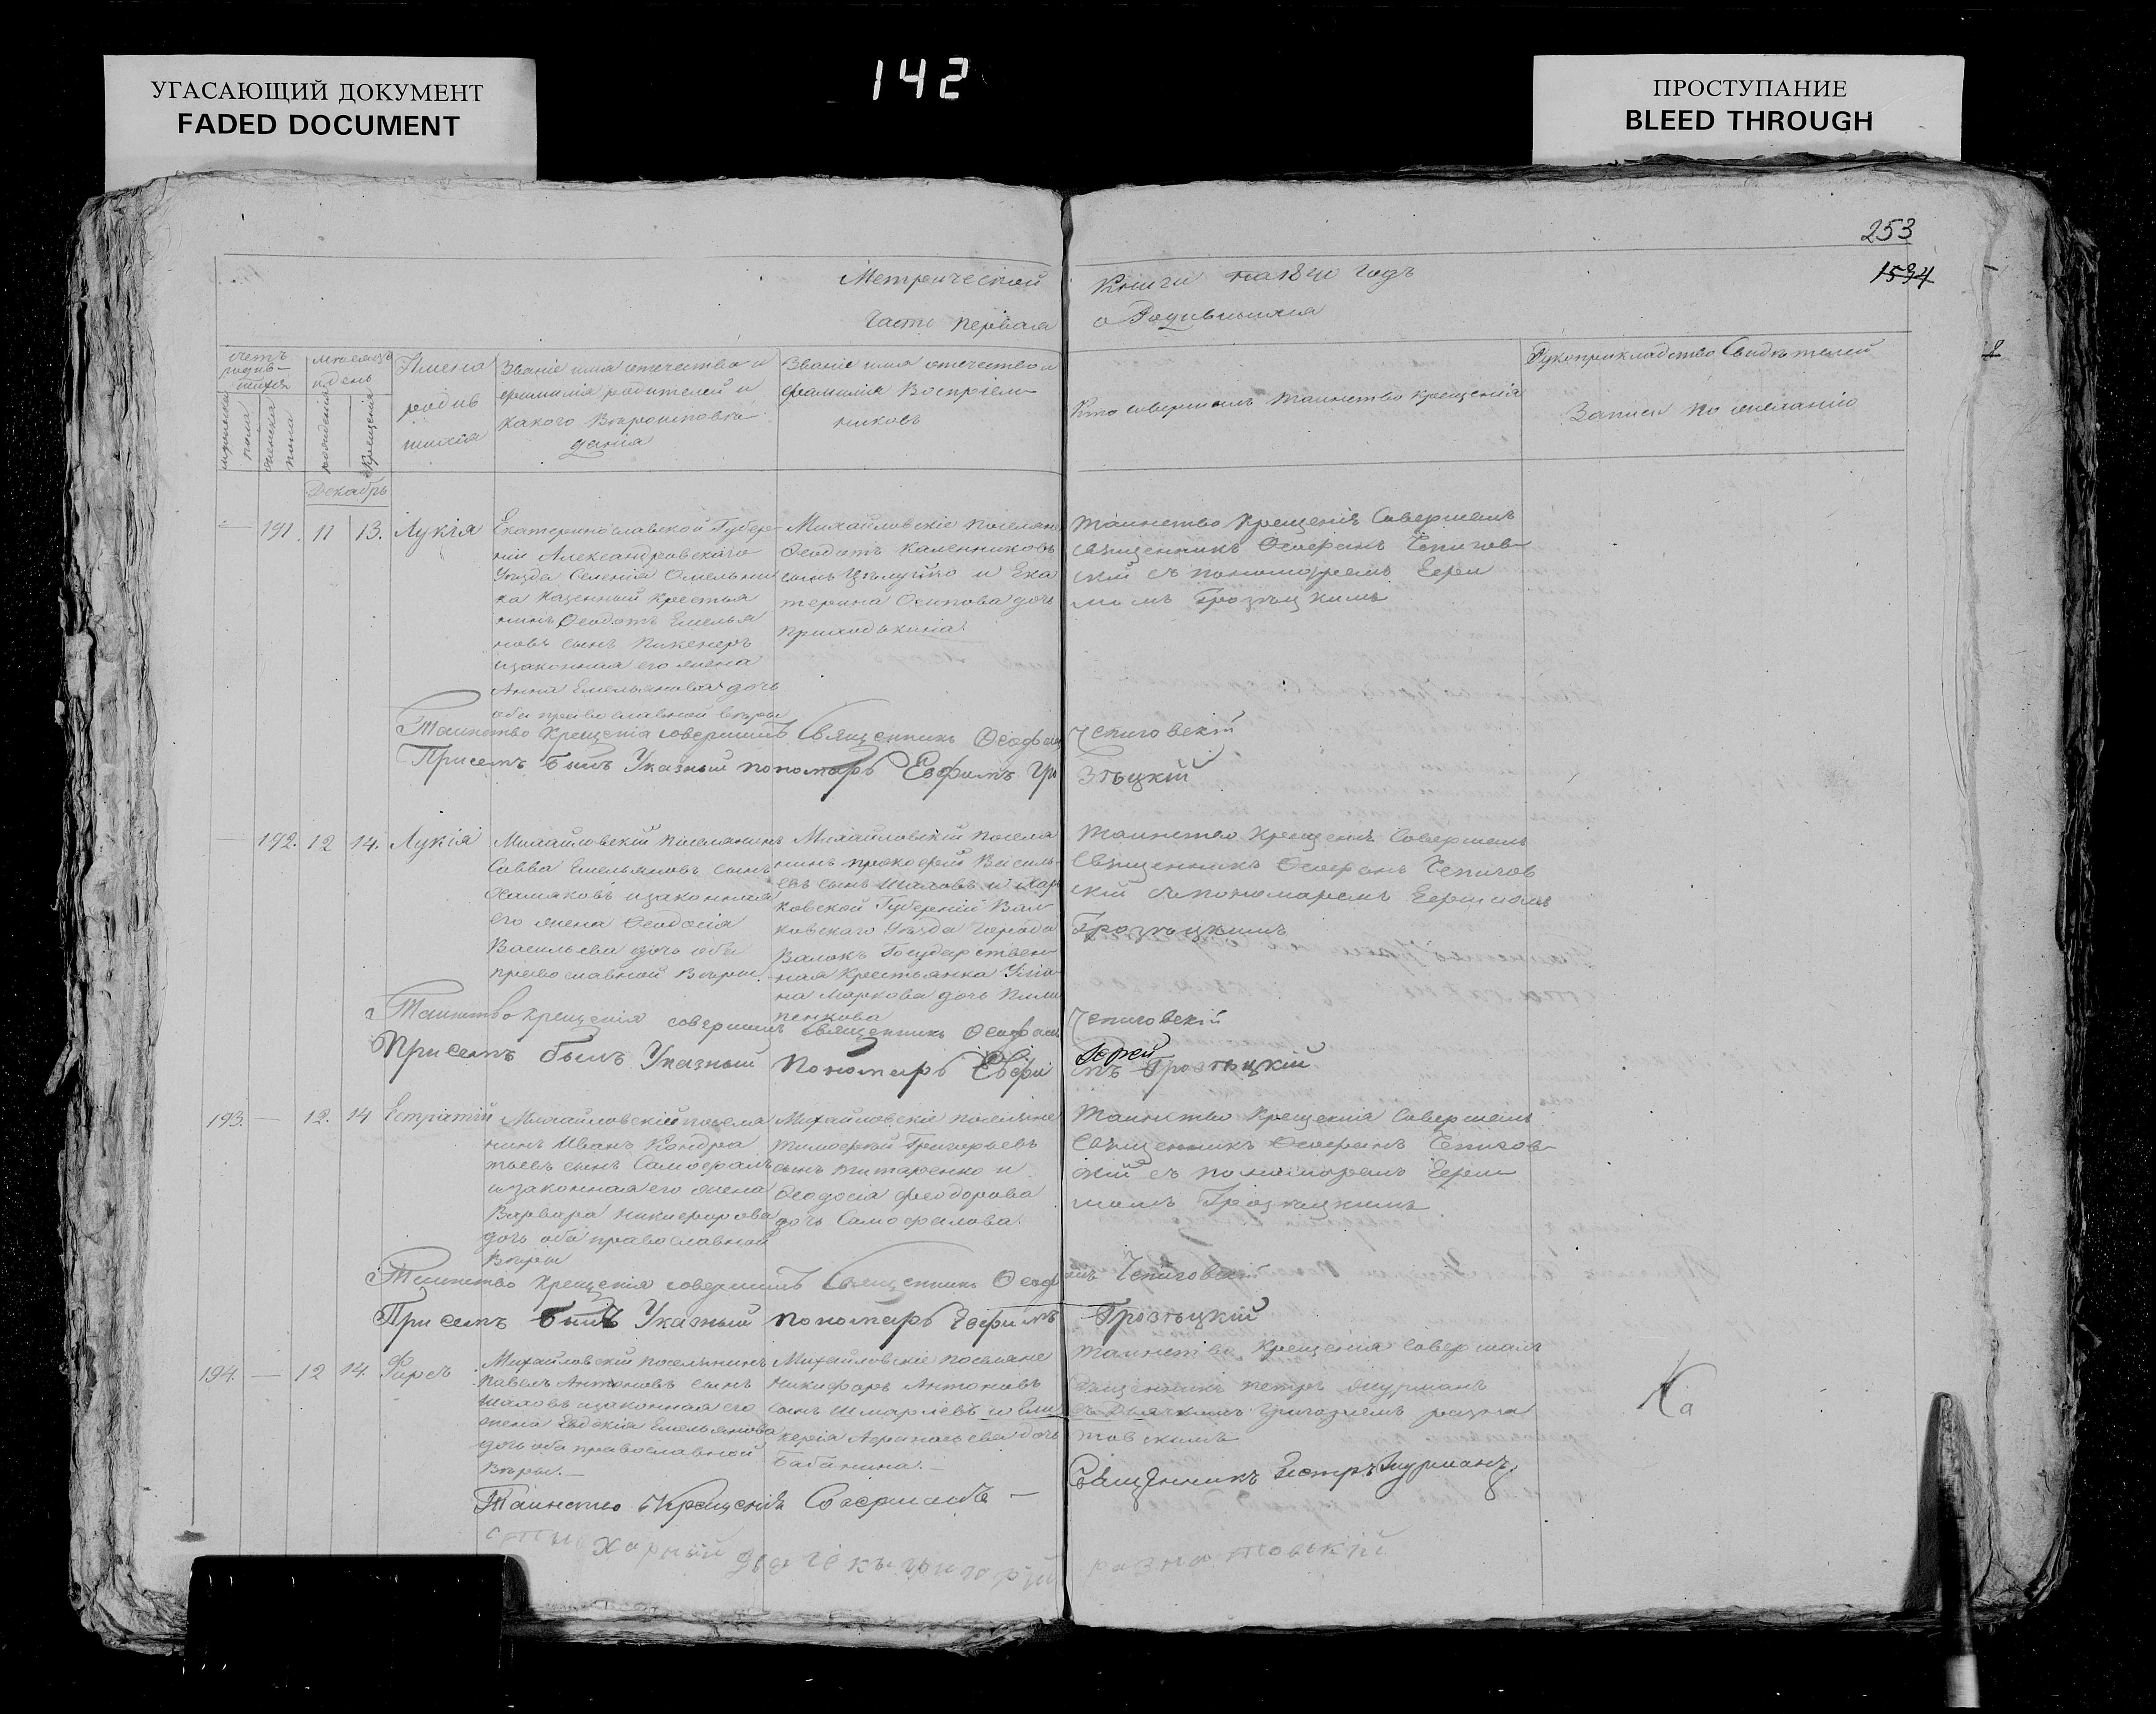 УГАСАЮЩИЙ ДОКУМЕНТ
FADED DOCUMENT
142
ПРОСТУПАНИЕ
BLEED THROUGH
253
1534
Метрической Книги на 1840 годъ
Часть первая о Родившихся
Счетъ родив-шихся
мужеска пола
женска пола
месяцъ и день
рождения
крещения
Имена родив шихся
Званіе имя отечество и фамилия родителей и какого Вѣроисповѣ дания
Званіе имя отечество и фамилия Воспріем никовъ
Кто совершалъ таинство крещения
Рукоприкладство Свидѣтелей Записи по желанію
Декабрь
191. 11 13. Лукія
Екатеринославской Губер-
нии Александровскаго
Уезда Селения Омельни
ка Казенный Крестья
нинъ Феодотъ Емелья
новъ сынъ Пикенеръ
и законная его жена
Анна Емельянова дочь
оба православной вѣры
Михайловскіе поселяне
Феодотъ Каленниковъ
сынъ и Ека
терина Осипова дочь
Приходькина
Таинство Крещения Совершалъ
священникъ Феофанъ Чепигов-
скій съ пономаремъ Ефи
момъ Грозецкимъ
Таинство Крещения совершилъ Священникъ Феофанъ Чепиговскій
При семъ былъ Указный пономарь Евфимъ Гро зѣцкій
192. 12 14. Лукія
Михайловскій поселянинъ
Савва Емельяновъ сынъ
и законная
его жена Феодосія
Васильева дочь оба
православной Вѣры.
Михайловскій посела
нинъ Прокофей Василь-
евъ сынъ Шаловъ и Хар
ковской Губерніи Вал
ковскаго Уѣзда города
Валокъ Государствен-
ная Крестьянка Улья
на Маркова дочь Пили
пенкова
Таинство Крещения Совершалъ
Священникъ Феофанъ Чепигов
скій съ пономаремъ Ефимомъ
Грозецкимъ
Таинство крещения совершилъ Священникъ Феофанъ Чепиговскій
При семъ былъ Указный Пономарь Евфи мъ Грозѣцкій
193. 12. 14 Естратій
Михайловскій посела
нинъ Иванъ Кондра
тьевъ сынъ Самофалъ
и законная его жена
Варвара Никифорова
дочь оба православной
Вѣры
Михайловскіе поселяне
Тимофей Григорьевъ
сынъ Титаренко и
Феодосія Феодорова
дочь Самофалова.
Таинство Крещения Совершалъ
Священникъ Феофанъ Чепигов-
скій съ пономаремъ Ефи
момъ Грозецкимъ
Таинство Крещения совершилъ Священникъ Феоф анъ Чепиговскій
При семъ былъ Указный пономарь Евфимъ Грозѣцкій
194. 12 14. Фирсъ
Михайловскій поселянинъ
Павелъ Антоновъ сынъ
Шаловъ и законная его
жена Евдокія Емельянова
дочь оба православной
Вѣры.
Михайловскіе поселяне
Никифоръ Антоновъ
сынъ Шмарлевъ и Гли
керія Афанасьева дочь
Бабанина.
Таинство Крещения Совершалъ
Священникъ Петръ Шурманъ
съ Дьячкомъ Григориемъ Разна
товскимъ
Ка
Таинство Крещения Совершалъ — Священникъ Петръ Шурманъ
Стихарный дьячекъ Григорій Разнатовскій